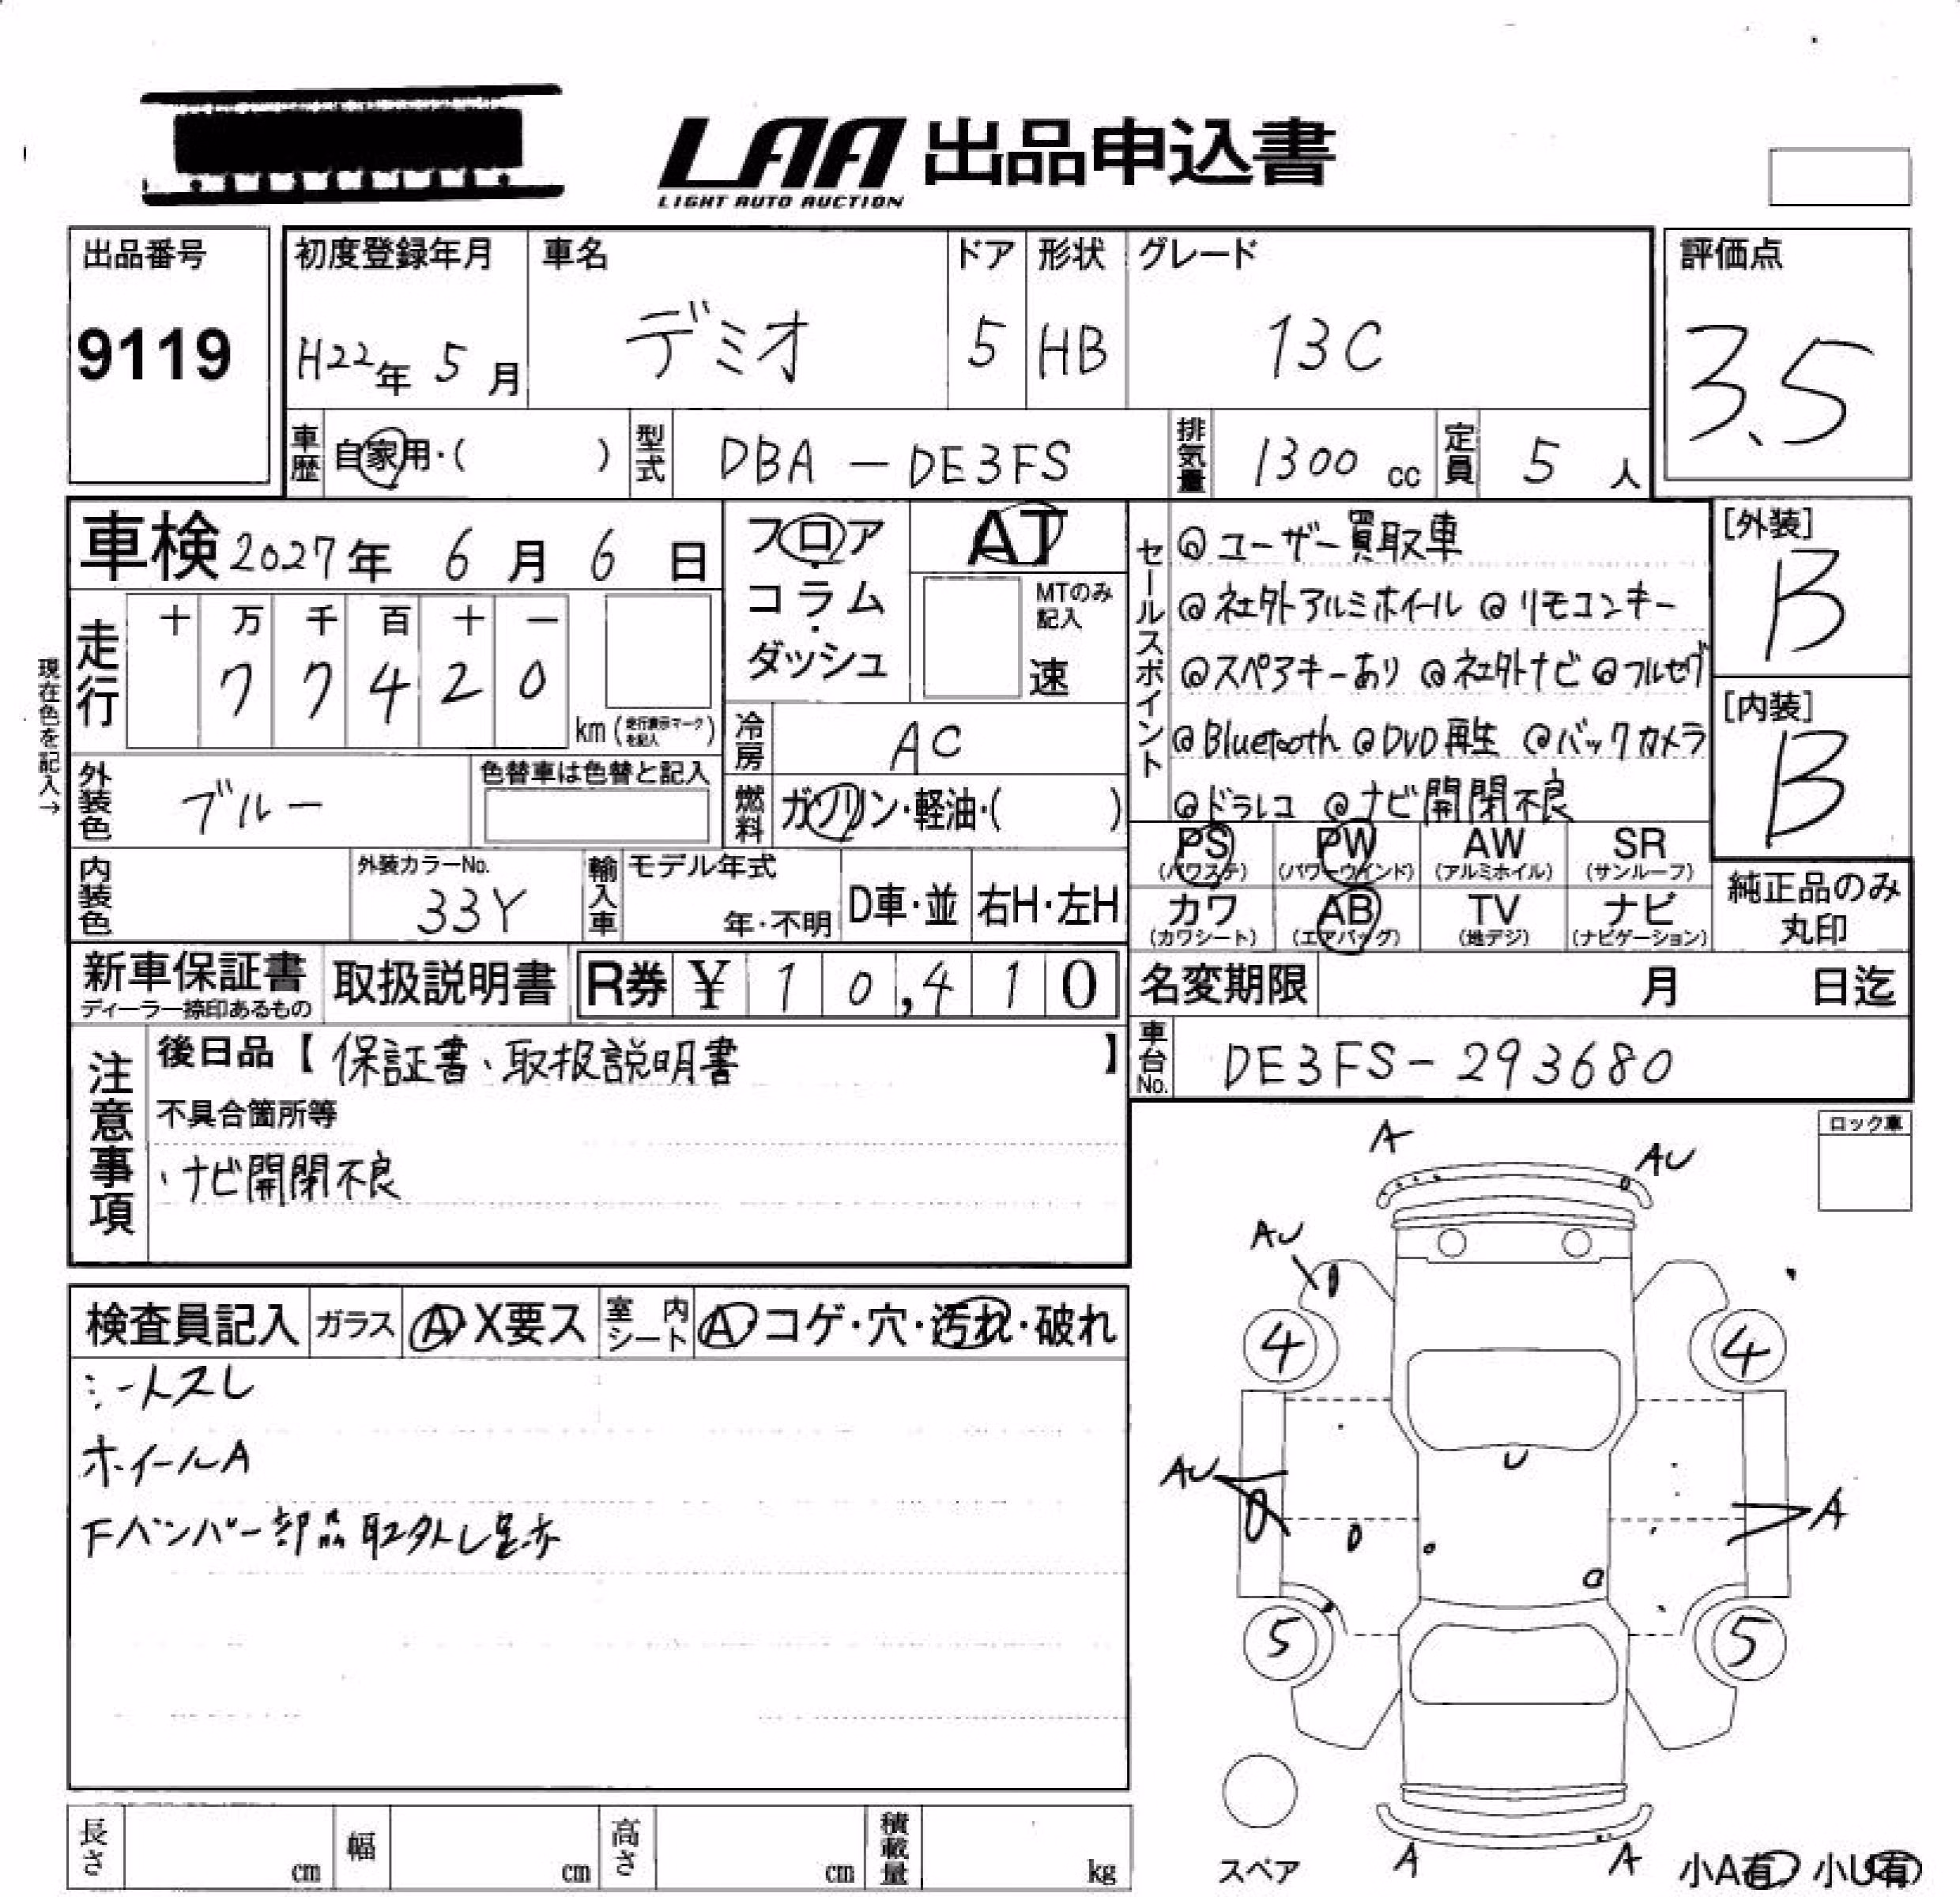 LAA 出品申込書
LIGHT AUTO AUCTION
出品番号
9119
初度登録年月
H22年 5月
車名
デミオ
ドア
5
形状
HB
グレード
13C
評価点
3.5
車歴
自家用・( )
型式
DBA - DE3FS
排気量
1300 cc
定員
5 人
車検 2027年 6月 6日
走行
十 万 千 百 十 一
7 7 4 2 0
km (走行表示マークを記入)
現在色を記入→
外装色
ブルー
色替車は色替と記入
内装色
外装カラーNo.
33Y
輸入車
モデル年式
年・不明
D車・並
右H・左H
フロア
・
コラム
・
ダッシュ
AT
MTのみ記入
速
冷房
AC
燃料
ガソリン・軽油・( )
セールスポイント
@ユーザー買取車
@社外アルミホイール @リモコンキー
@スペアキーあり @社外ナビ @フルセグ
@Bluetooth @DVD再生 @バックカメラ
@ドラレコ @ナビ開閉不良
[外装]
B
[内装]
B
PS (パワステ)
PW (パワーウインド)
AW (アルミホイル)
SR (サンルーフ)
カワ (カワシート)
AB (エアバッグ)
TV (地デジ)
ナビ (ナビゲーション)
純正品のみ
丸印
新車保証書
ディーラー捺印あるもの
取扱説明書
R券 ¥ 10,410
名変期限 月 日迄
車台No.
DE3FS-293680
注意事項
後日品【保証書、取扱説明書】
不具合箇所等
・ナビ開閉不良
ロック車
検査員記入
ガラス
A・X要ス
室内シート
A・コゲ・穴・汚れ・破れ
シートスレ
ホイールA
Fバンパー部品取外し是赤
A
AU
AU
4
4
U
AU
A
5
5
スペア
A
A
小A有 小U有
長さ cm
幅 cm
高さ cm
積載量 kg